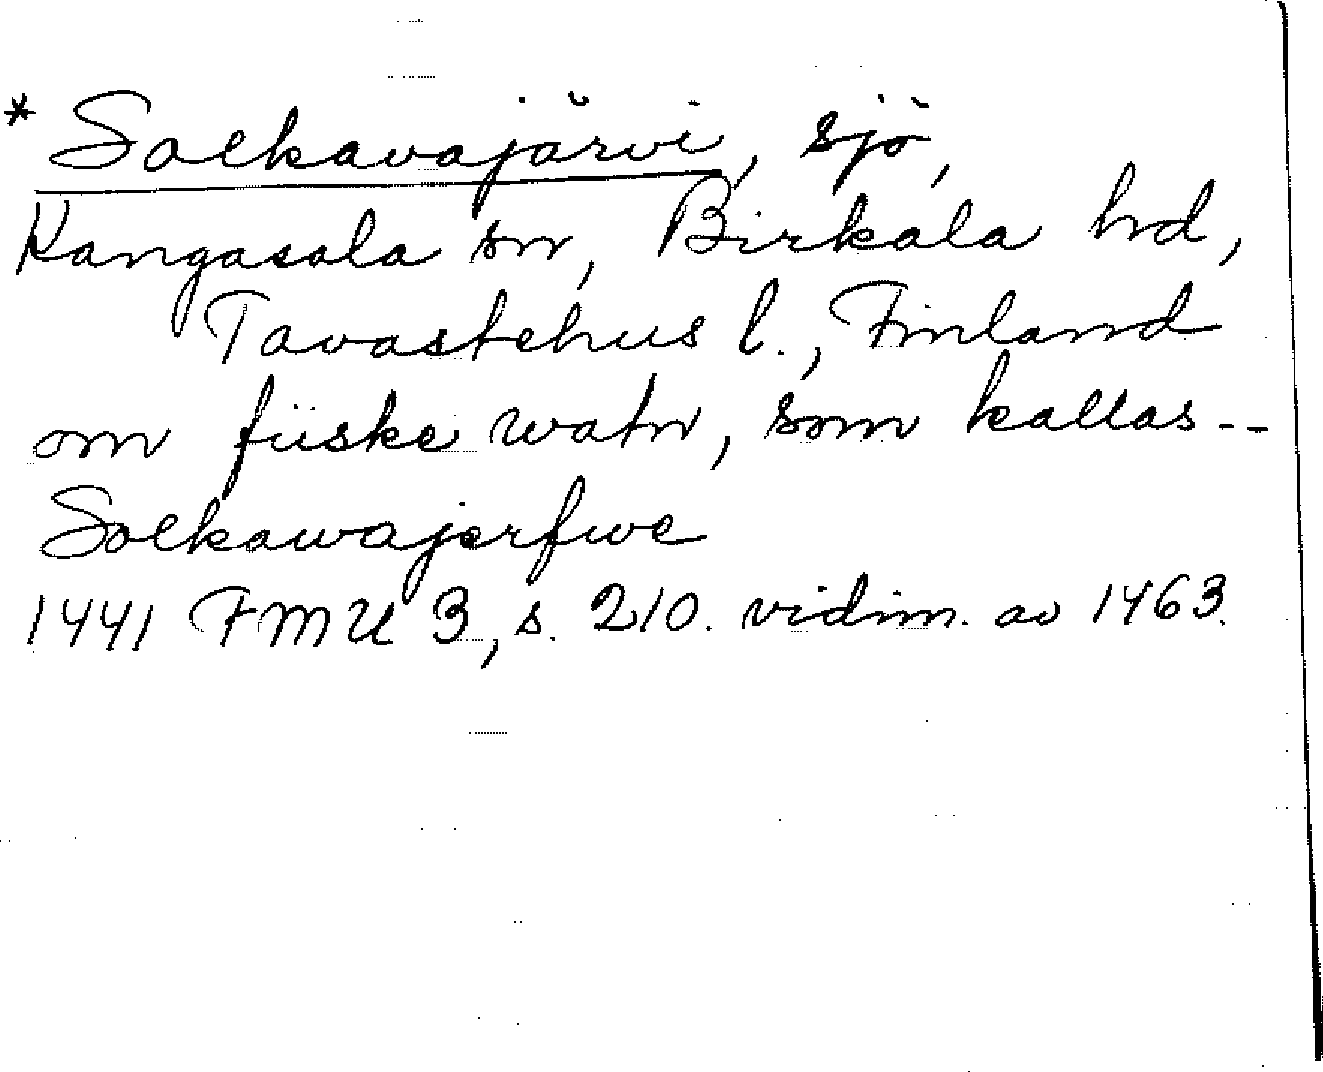 * Solkavajärvi, sjö,
Kangasala sn, Birkala hd,
Tavastehus l., Finland
om fiiske watn, som kallas --
Solkawajerfwe
1441 FMU 3, s. 210. vidim. av 1463.